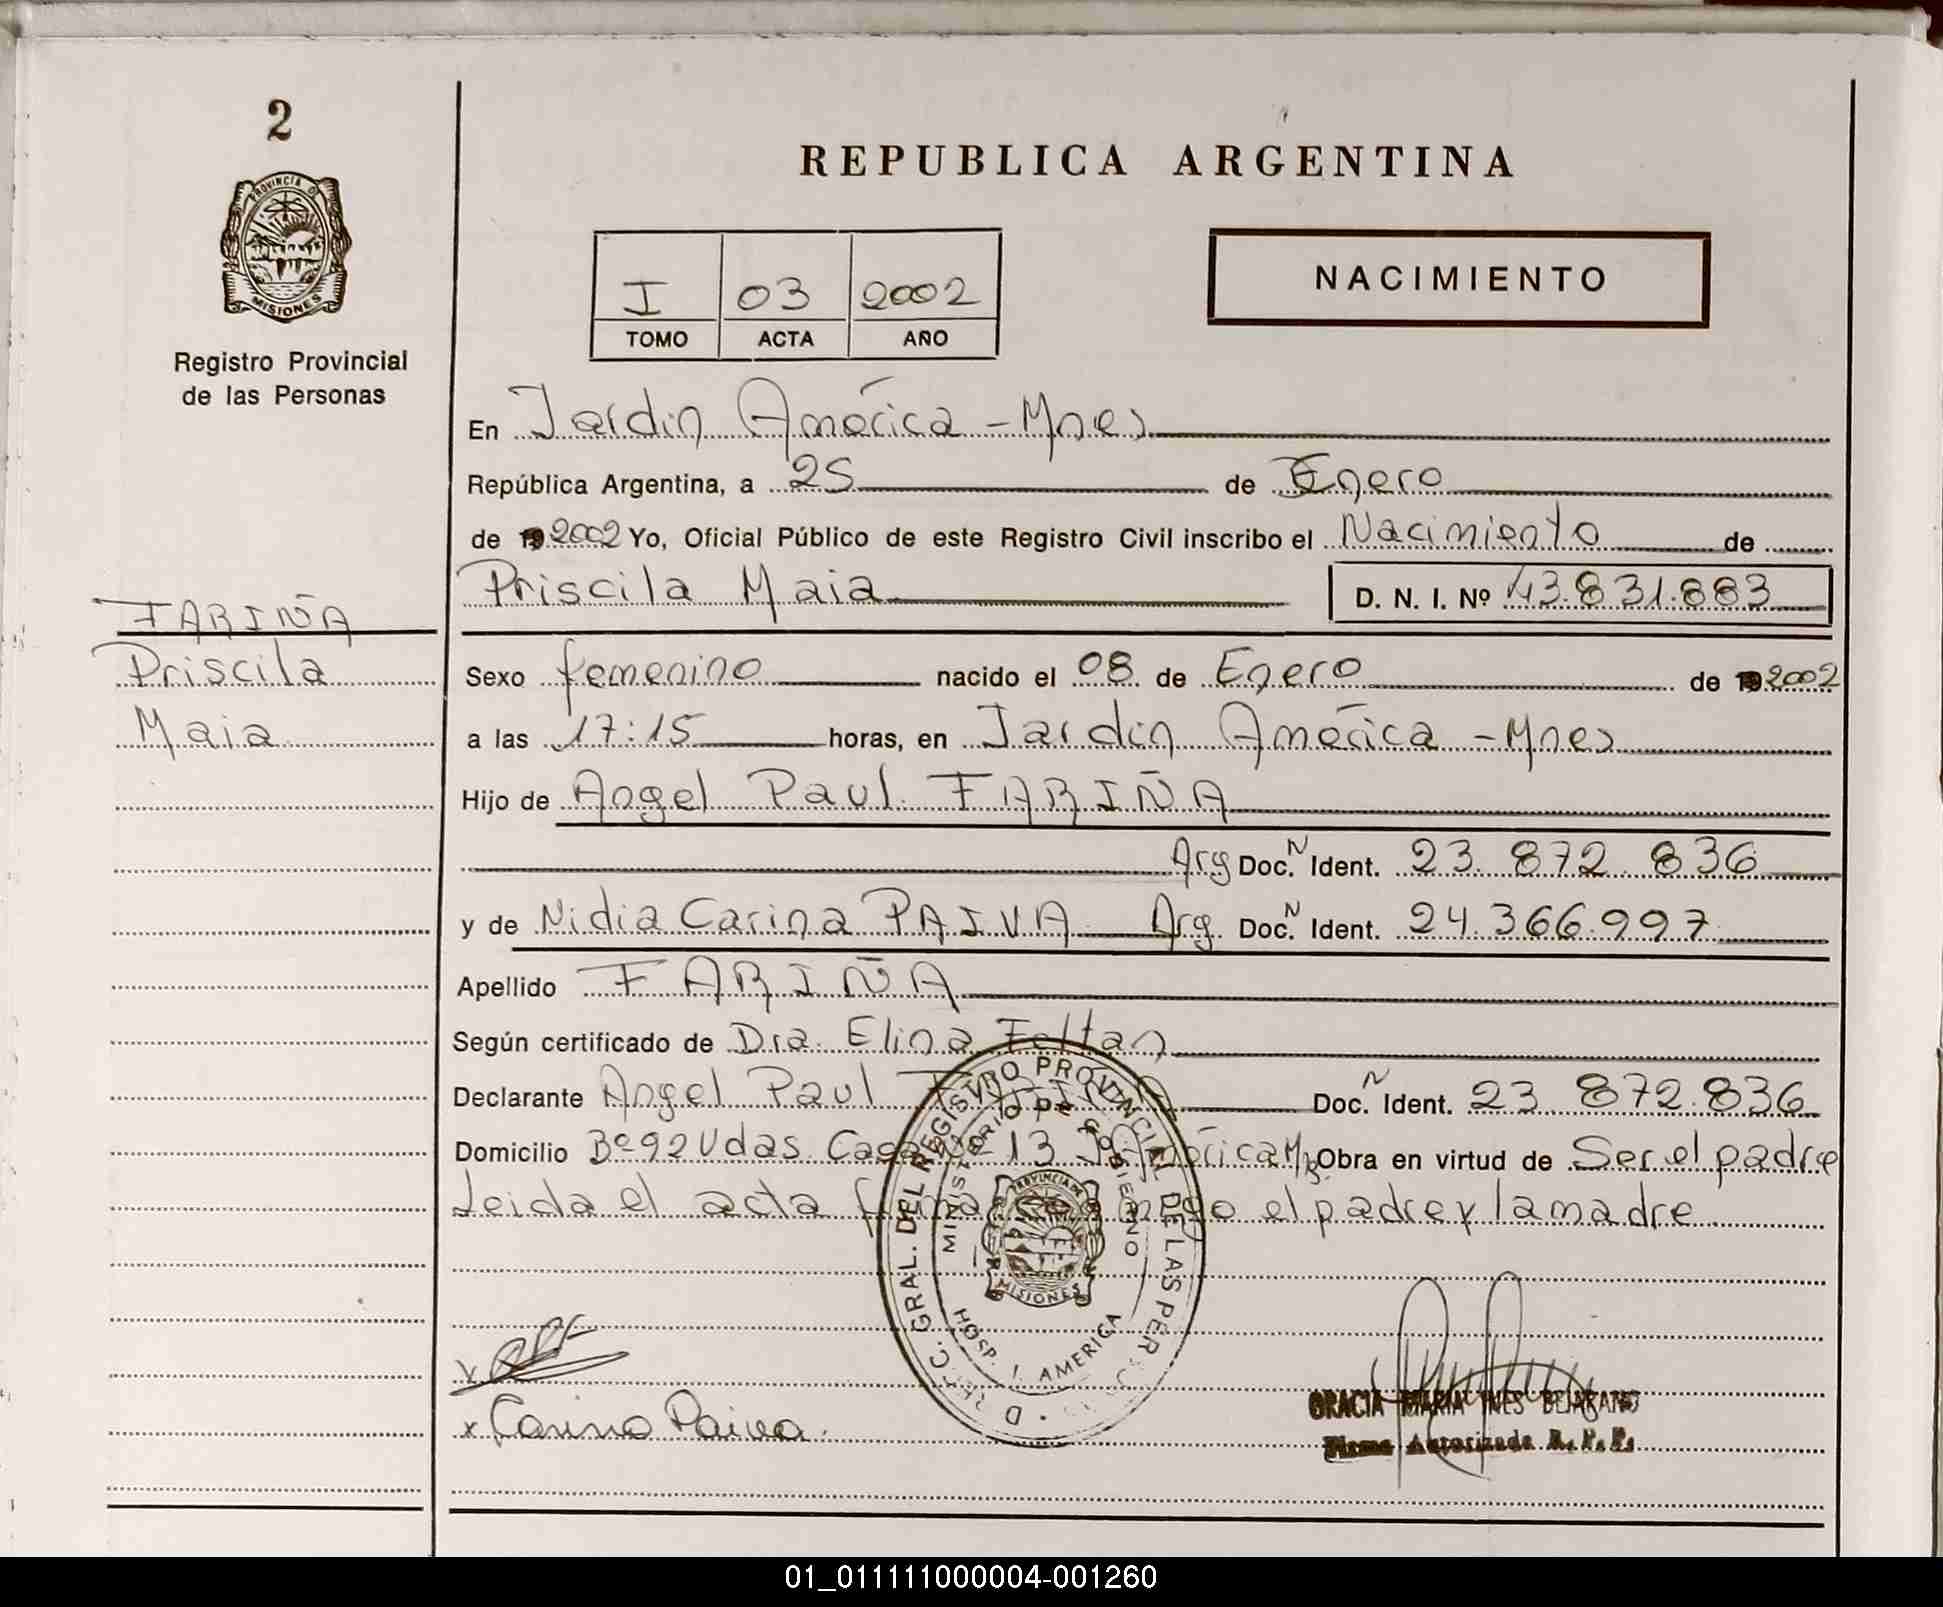 2
PROVINCIA D
MISIONES
Registro Provincial
de las Personas
FARIÑA
Priscila
Maia
REPUBLICA ARGENTINA
I 03 2002
TOMO ACTA AÑO
NACIMIENTO
En Jardin América - Mnes
República Argentina, a 25 de Enero
de 19 2002 Yo, Oficial Público de este Registro Civil inscribo el Nacimiento de
Priscila Maia D. N. I. Nº 43.831.883
Sexo femenino nacido el 08 de Enero de 19 2002
a las 17:15 horas, en Jardin América - Mnes
Hijo de Angel Paul FARIÑA
Arg Doc. N Ident. 23.872.836
y de Nidia Carina PAIVA Arg. Doc. N Ident. 24.366.997
Apellido FARIÑA
Según certificado de Dra. Elina Feltan
Declarante Angel Paul Doc. N Ident. 23 872.836
Domicilio Bº 92 Vdas. Casa Nº 13 J. América Mns Obra en virtud de Ser el padre
Leida el acta firma conmigo el padre y la madre
D REC. GRAL. DEL REGISTRO PROVINCIAL DE LAS PERSONAS
MINISTERIO DE GOBIERNO
PROVINCIA DE
MISIONES
HOSP. J. AMERICA
x Carina Paiva.
GRACIA MARIA INES BEJARANO
Firma Autorizada R. P. P.
01_011111000004-001260